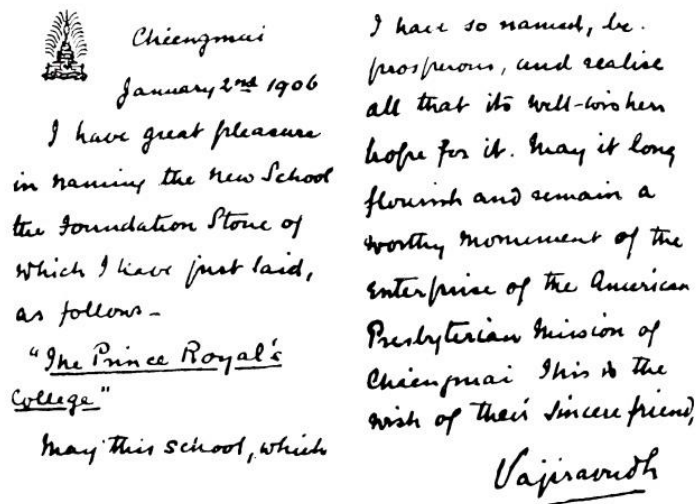 Chiengmai
January 2nd 1906
I have great pleasure
in naming the new School
the Foundation Stone of
which I have just laid,
as follows –
"The Prince Royal's
College"
May this school, which
I have so named, be
prosperous, and realise
all that its well-wishers
hope for it. May it long
flourish and remain a
worthy monument of the
enterprise of the American
Presbyterian Mission of
Chiengmai This is the
wish of their sincere friend,
Vajiravudh